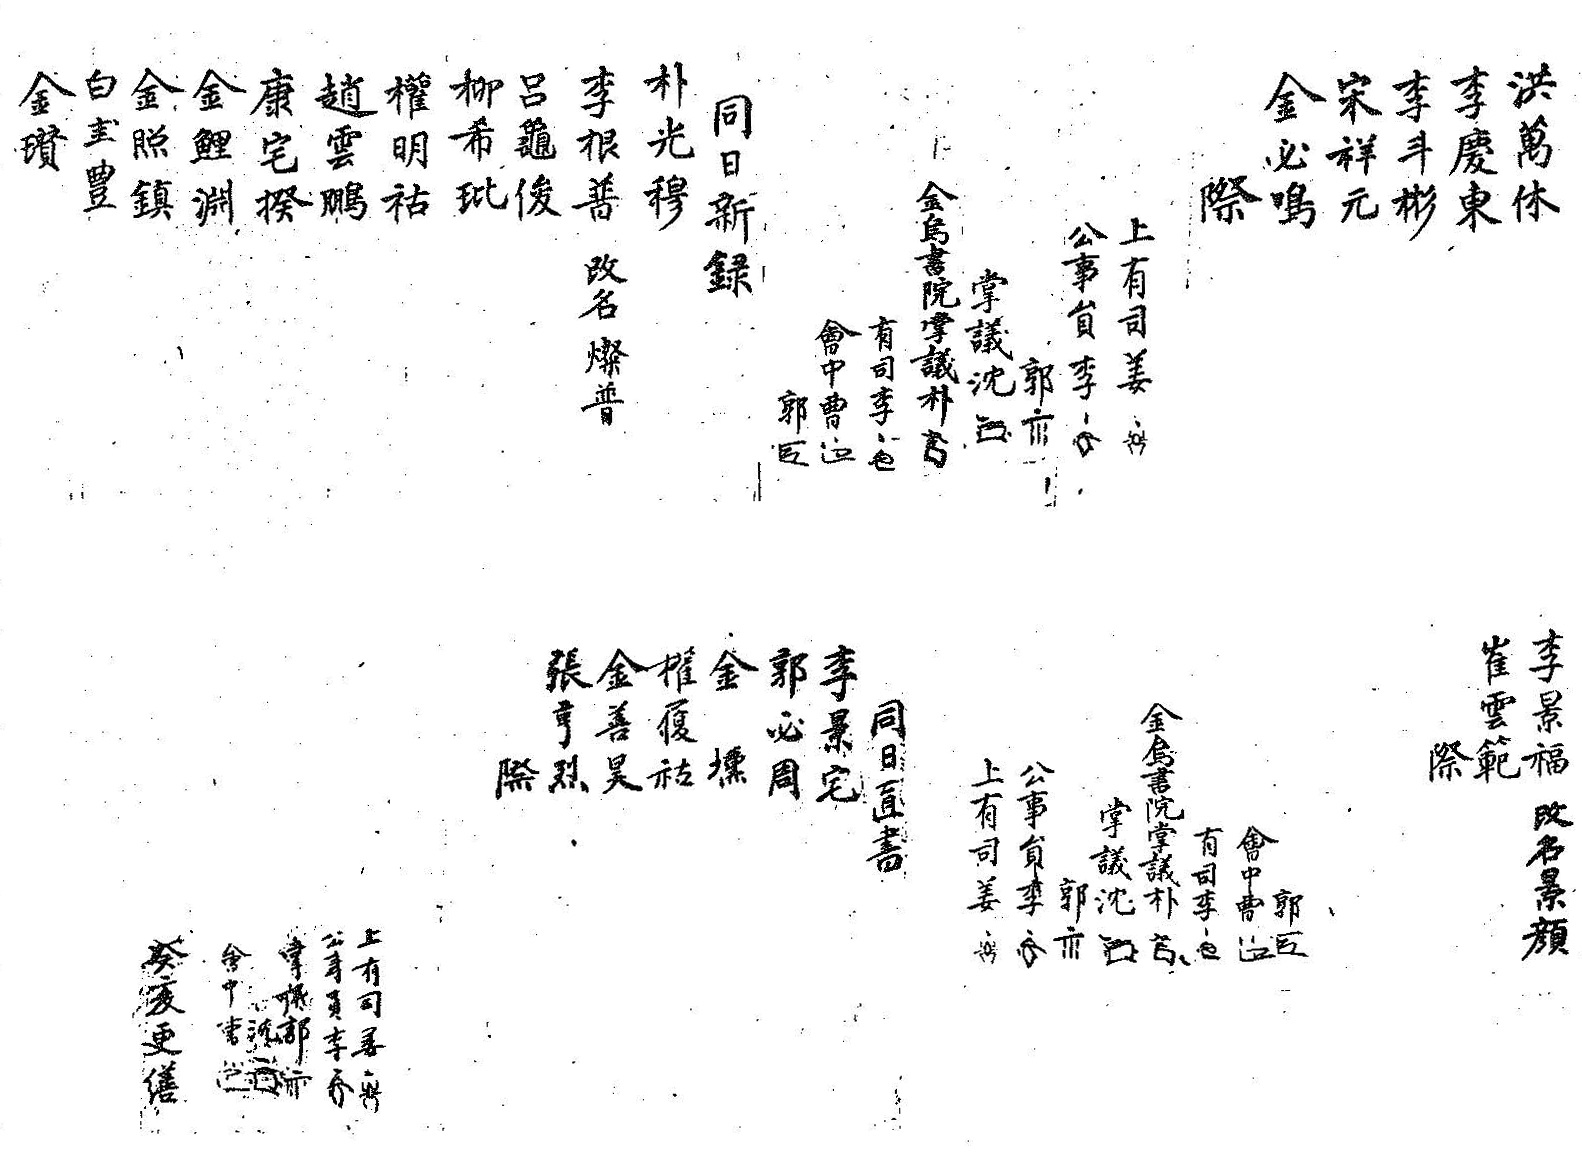 洪萬休
李慶東
李斗彬
宋祥元
金必鳴
際
上有司姜
公事員李
郭
掌議沈
金烏書院掌議朴
有司李
會中曹
郭
同日新録
朴光穆
李根普 改名 燦普
呂龜俊
柳希玭
權明祜
趙雲鵬
康宅揆
金鯉淵
金照鎮
白圭豊
金瓚
李景福 改名景顔
崔雲範
際
郭
會中曹
有司李
金烏書院掌議朴
掌議沈
郭
公事員李
上有司姜
同日直書
李景宅
郭必周
金壎
權復祜
金善昊
張亨烈
際
上有司姜
公事員李
掌議郭
沈
會中曹
癸亥更繕